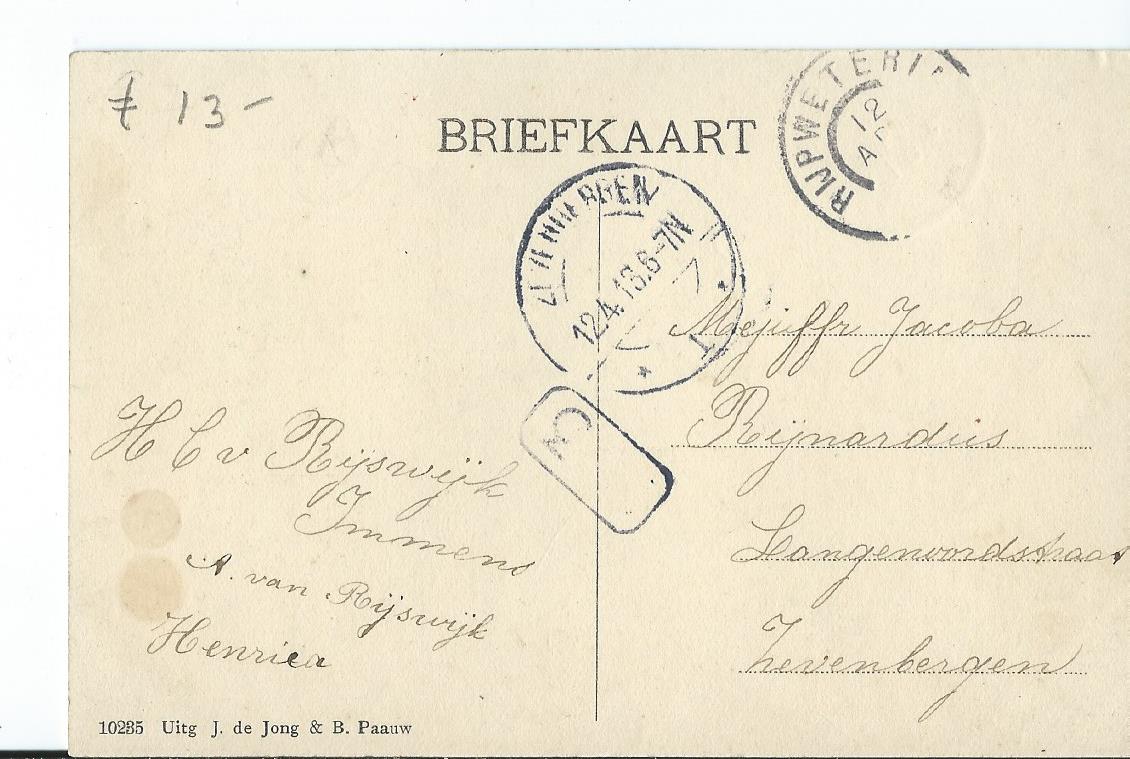 ƒ 13-
BRIEFKAART
RIJPWETERI
12
ZEVENBERGEN
12.4.18.6-7N
Mejuffr Jacoba
Rijnardus
Langenoordstraat
Zevenbergen
H C v Rijswijk
Immens
A. van Rijswijk
Henrica
10235 Uitg J. de Jong & B. Paauw